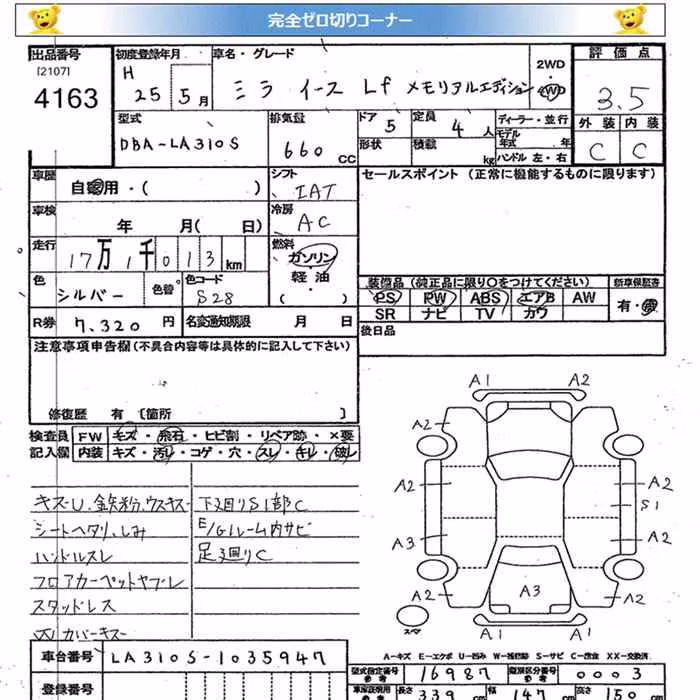 完全ゼロ切りコーナー
出品番号
[2107]
4163
初度登録年月
H 25 5月
車名・グレード
ミラ イース Lf メモリアルエディション
2WD
・
4WD
評価点
3.5
型式
DBA-LA310S
排気量
660 CC
ドア 5
定員 4 人
形状
積載 kg
ディーラー・並行
モデル年式 年
ハンドル 左・右
外装 内装
C C
車歴
自家用・( )
シフト
IAT
セールスポイント (正常に機能するものに限ります)
車検
年 月( 日)
冷房
AC
走行
17万1千013km
燃料
ガソリン
軽油
・( )
色
シルバー
色替
色コード
S28
装備品(純正品に限り○をつけてください)
PS PW ABS エアB AW
SR ナビ TV カワ
新車保証書
有・無
R券 7,320 円
名変通知期限 月 日
後日品
注意事項申告欄(不具合内容等は具体的に記入して下さい)
修復歴 有 [箇所 ]
検査員記入欄
FW キズ・飛石・ヒビ割・リペア跡・×要
内装 キズ・汚レ・コゲ・穴・スレ・キレ・破レ
キズU.鉄粉.ウスキズ
シートヘタリ、しみ
ハンドルスレ
フロアカーペットヤブレ
スタッドレス
カバーキズ
下廻りS1部C
E/Gルーム内サビ
足廻りC
A1 A2
A2 A2
A2 A2
S1
A3 A2
A3
A2 A2
A1 A1
スペア
A-キズ E-エクボ U-凹み W-補修跡 S-サビ C-腐食 XX-交換済
車台番号 LA310S-1035947
登録番号
型式指定番号 参考 16987
類別区分番号 参考 0003
車庫証明用 参考 長さ 339 cm 幅 147 cm 高さ 150 cm